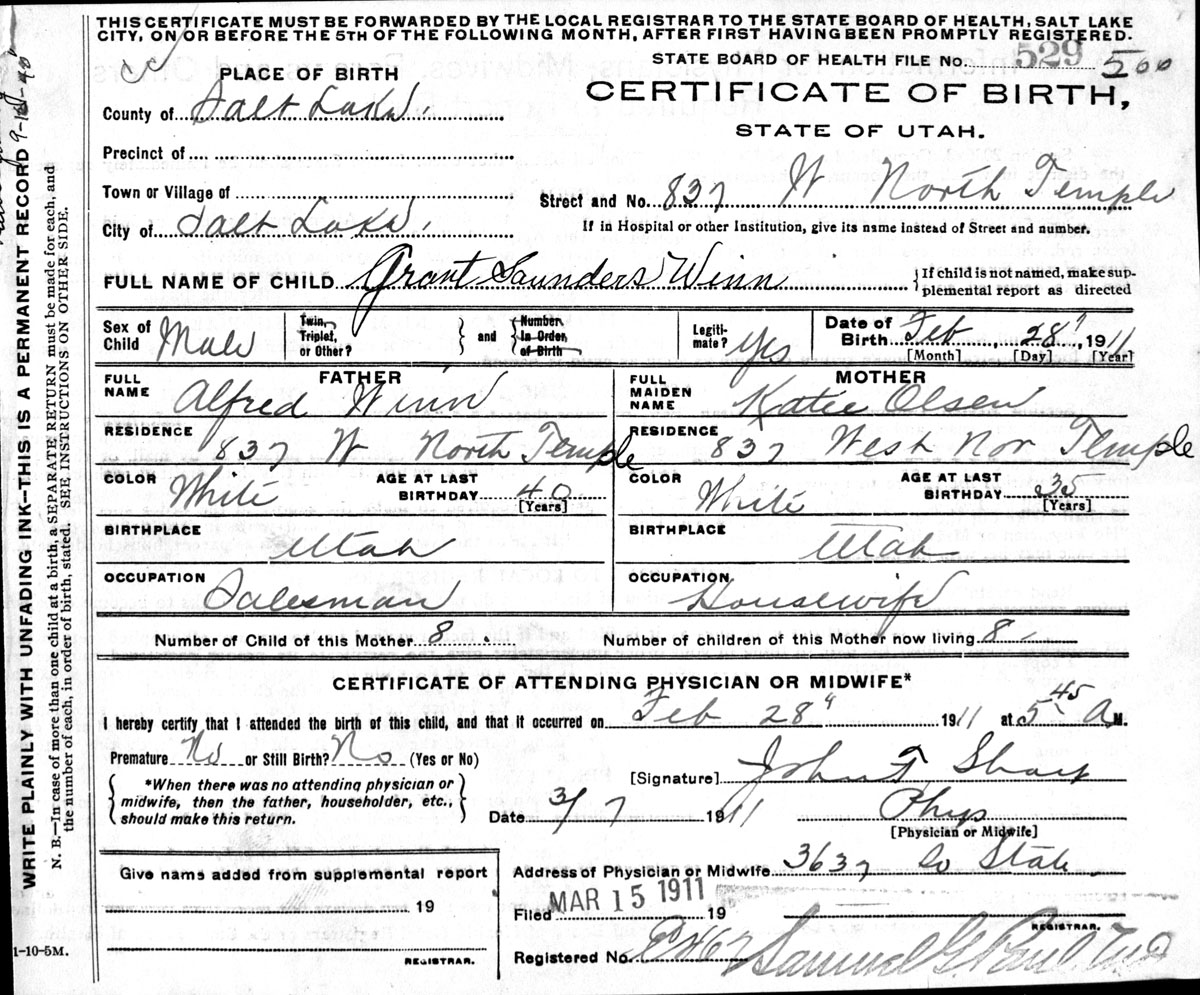 THIS CERTIFICATE MUST BE FORWARDED BY THE LOCAL REGISTRAR TO THE STATE BOARD OF HEALTH, SALT LAKE
CITY, ON OR BEFORE THE 5TH OF THE FOLLOWING MONTH, AFTER FIRST HAVING BEEN PROMPTLY REGISTERED.
STATE BOARD OF HEALTH FILE No. 529 500
PLACE OF BIRTH
CERTIFICATE OF BIRTH,
STATE OF UTAH.
County of Salt Lake
Precinct of
Town or Village of
Street and No. 837 W North Temple
City of Salt Lake
If in Hospital or other Institution, give its name instead of Street and number.
FULL NAME OF CHILD Grant Saunders Winn
If child is not named, make sup-
plemental report as directed
Sex of Child Male
Twin, Triplet, or Other? and Number In Order of Birth
Legiti-mate? Yes
Date of Birth Feb 28", 1911
[Month] [Day] [Year]
FATHER
FULL NAME Alfred Winn
RESIDENCE 837 W North Temple
COLOR White AGE AT LAST BIRTHDAY 40 [Years]
BIRTHPLACE Utah
OCCUPATION Salesman
MOTHER
FULL MAIDEN NAME Katie Olsen
RESIDENCE 837 West Nor Temple
COLOR White AGE AT LAST BIRTHDAY 35 [Years]
BIRTHPLACE Utah
OCCUPATION Housewife
Number of Child of this Mother 8 Number of children of this Mother now living 8
CERTIFICATE OF ATTENDING PHYSICIAN OR MIDWIFE*
I hereby certify that I attended the birth of this child, and that it occurred on Feb 28" 1911 at 5 45 A M.
Premature No or Still Birth? No (Yes or No)
*When there was no attending physician or
midwife, then the father, householder, etc.,
should make this return.
[Signature] John T Sharp
Date 3/7 1911 Phys
[Physician or Midwife]
Give name added from supplemental report
19
REGISTRAR.
Address of Physician or Midwife 3637 So State
Filed MAR 15 1911 19
REGISTRAR.
Registered No.
Samuel G Paul
1-10-5M.
WRITE PLAINLY WITH UNFADING INK—THIS IS A PERMANENT RECORD
N. B.—In case of more than one child at a birth, a SEPARATE RETURN must be made for each, and
the number of each, in order of birth, stated. SEE INSTRUCTIONS ON OTHER SIDE.